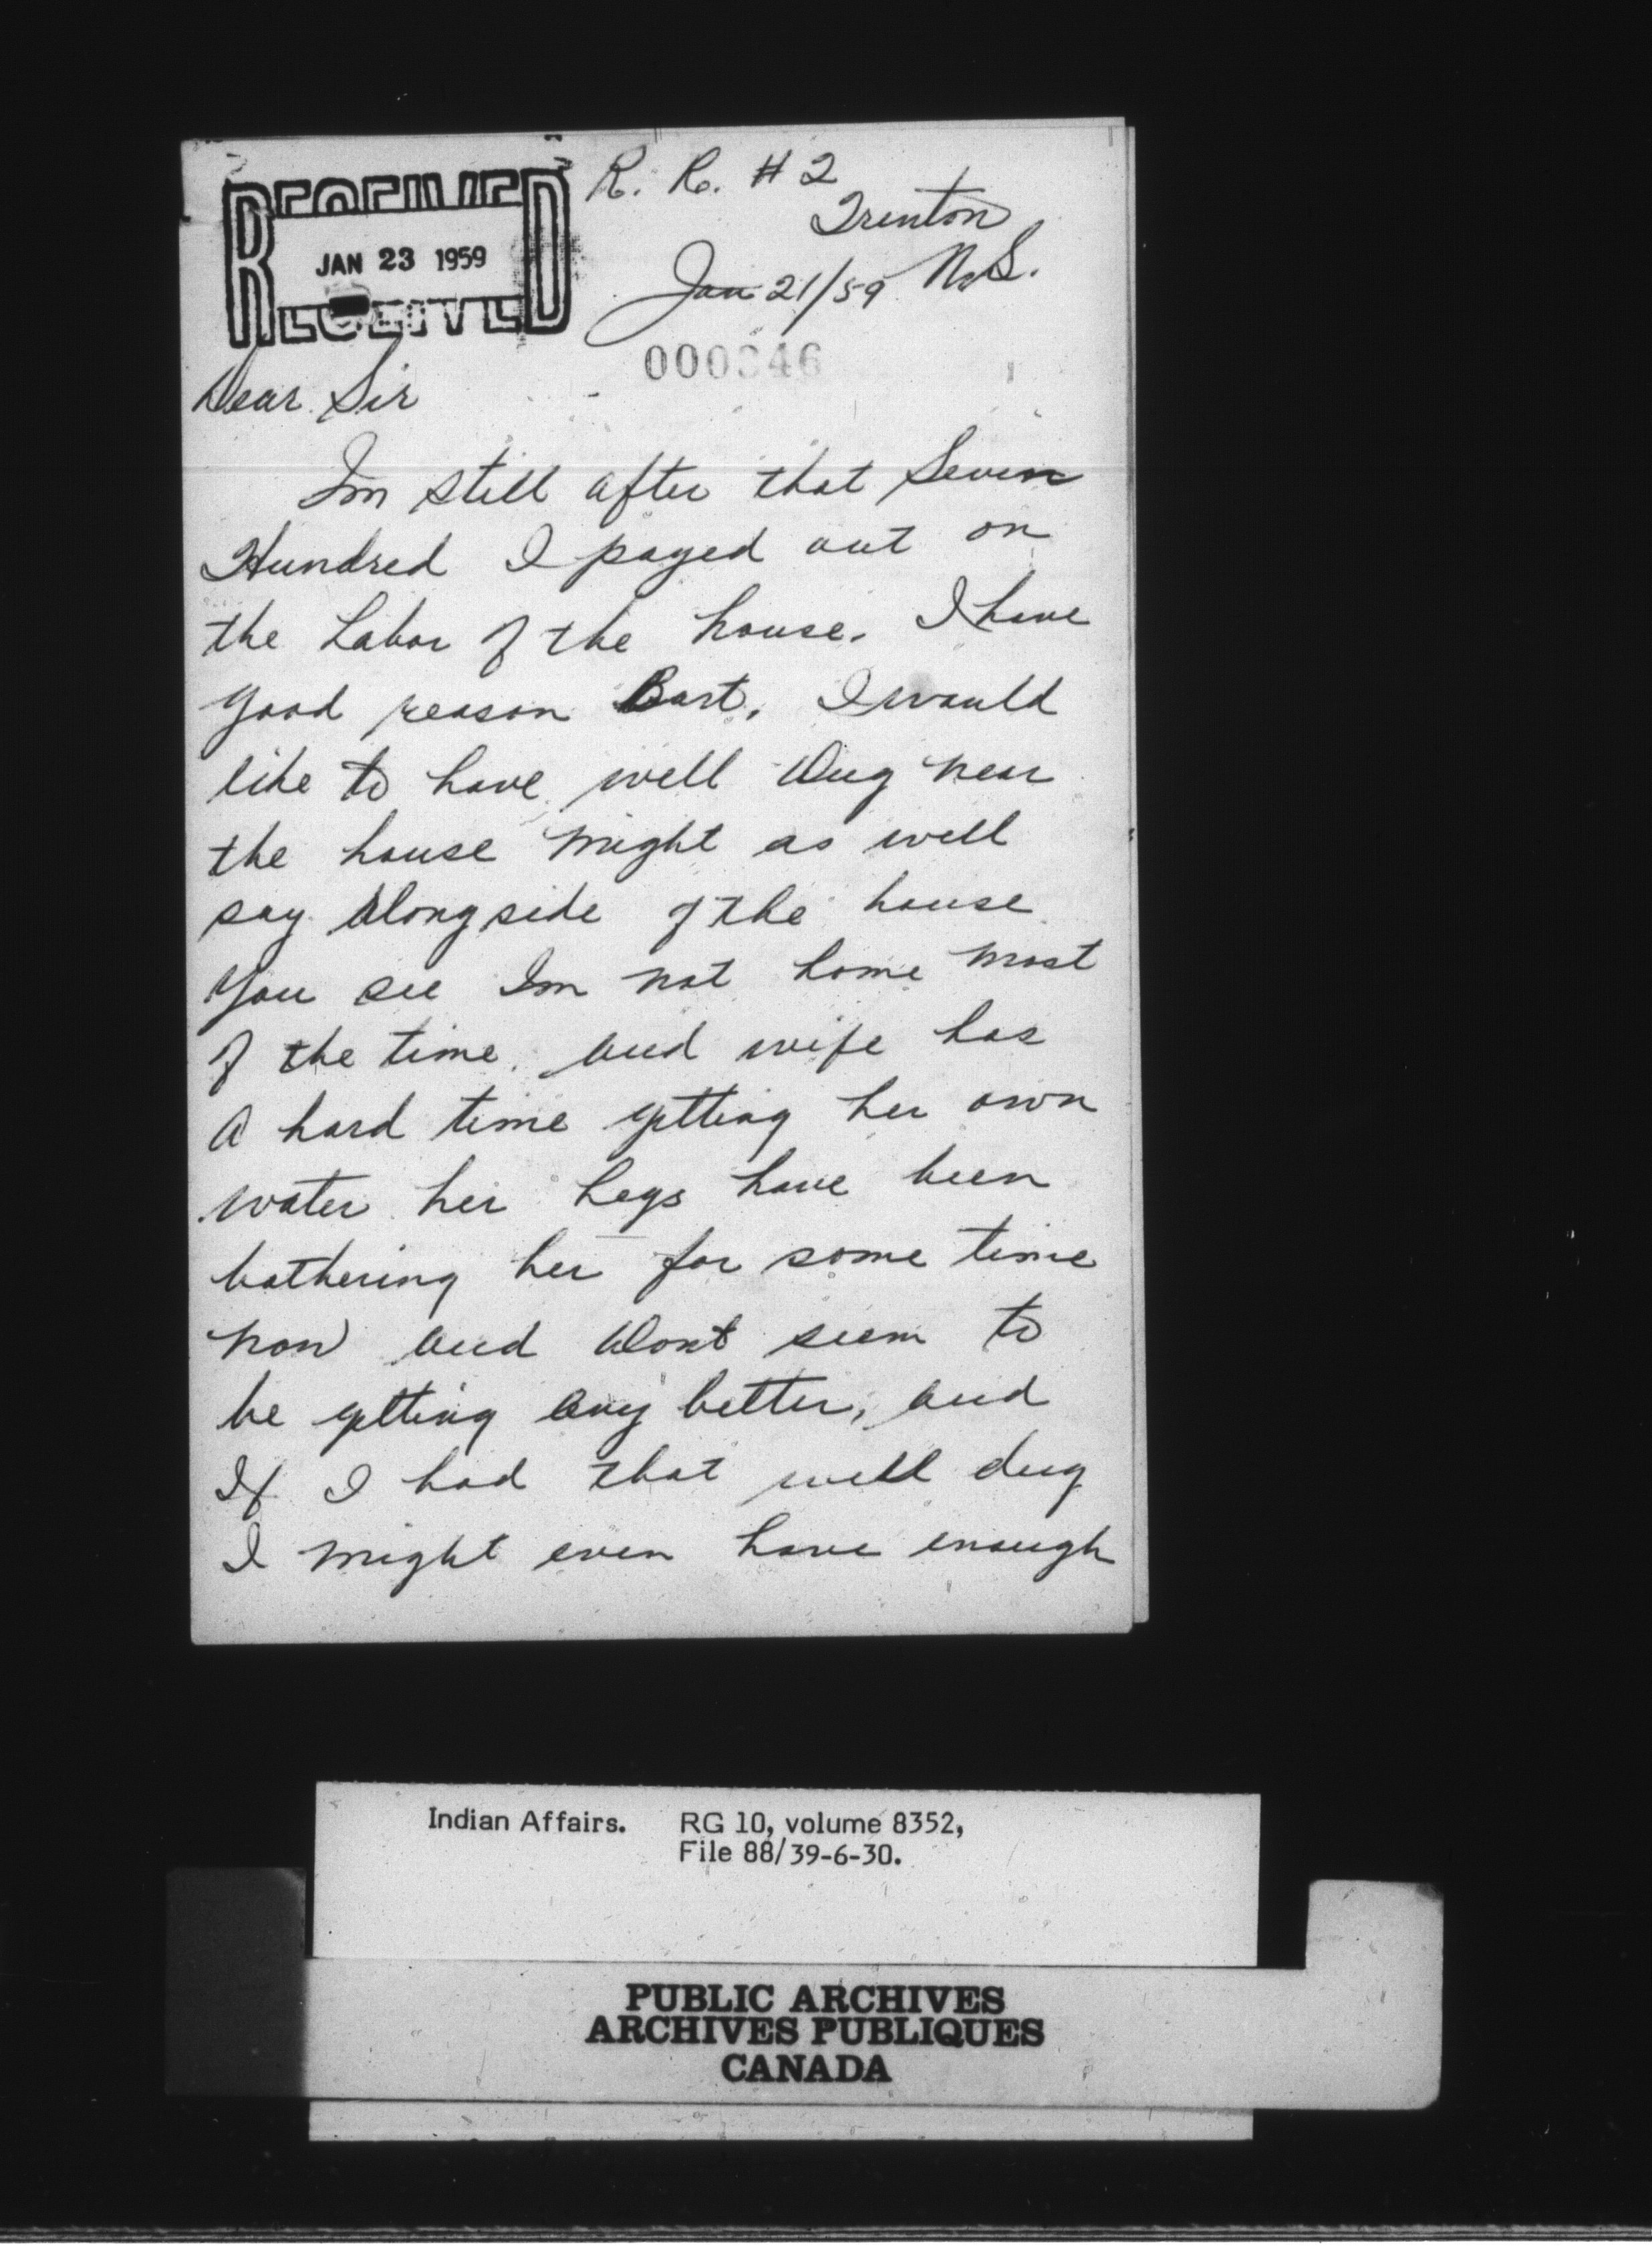 RECEIVED
JAN 23 1959
RECEIVED
R. R. # 2
Trenton
N.S.
Jan 21/59
000346
Dear Sir
Im still after that Seven
Hundred I payed out on
the Labor of the house. I have
good reason Bart. I would
like to have well Dug near
the house might as well
say Alongside of the house
You see Im not home most
of the time. and wife has
A hard time getting her own
water her Legs have been
bothering her for some time
now and Dont seem to
be getting any better, and
If I had that well dug
I might even have enough
Indian Affairs. RG 10, volume 8352,
File 88/39-6-30.
PUBLIC ARCHIVES
ARCHIVES PUBLIQUES
CANADA